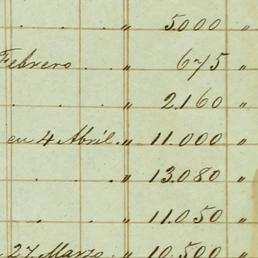 . . . " 5.000 "
Febrero . " 675 "
. . . " 2.160 "
en 4 Abril . " 11.000 "
. . . " 13.080 "
. . . " 11.050 "
27 Marzo " 10.500 "